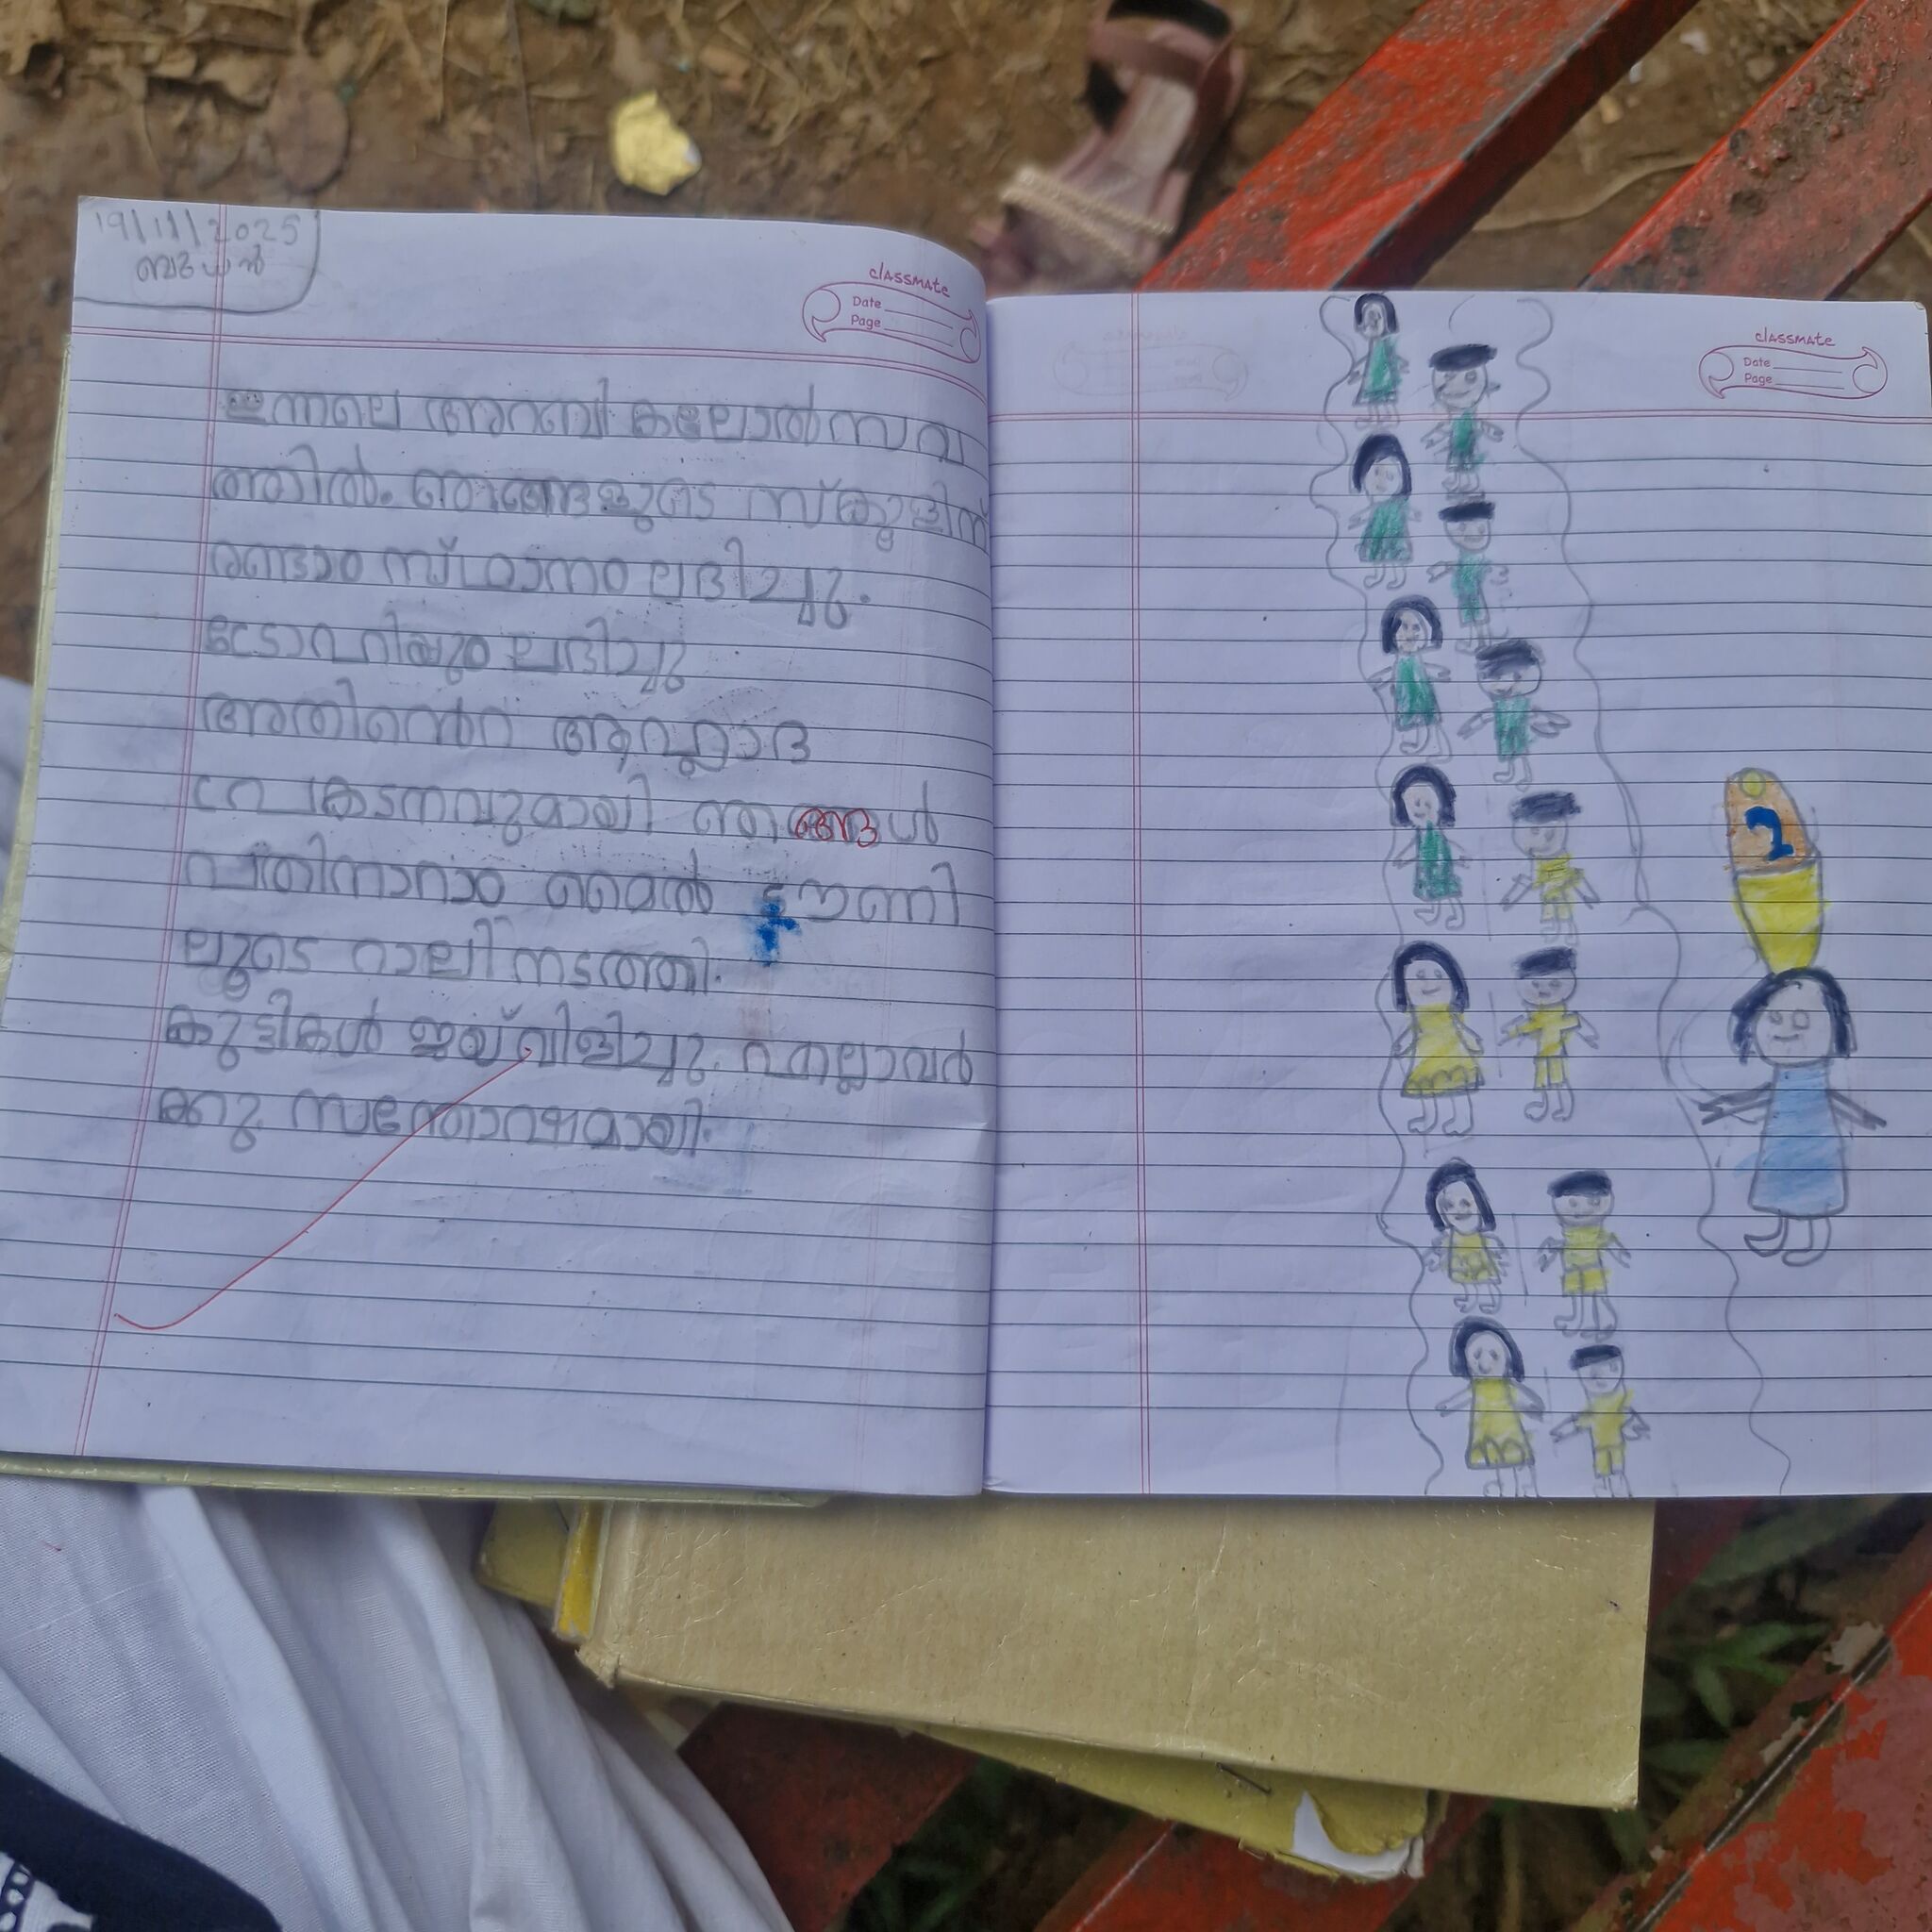 19/11/2025
ബുധൻ
classmate
Date
Page
ഇന്നലെ അറബി കലോൽസവ
ത്തിൽ. ഞങ്ങളുടെ സ്ക്കൂളിന്
രണ്ടാം സ്ഥാനം ലഭിച്ചു.
ട്രോഫിയും ലഭിച്ചു
അതിൻെറ ആഹ്ലാദ
പ്രകടനവുമായി ഞങ്ങൾ
പതിനാറാം മൈൽ ടൗണി
ലൂടെ റാലി നടത്തി.
കുട്ടികൾ ജയ് വിളിച്ചു. എല്ലാവർ
ക്കും സന്തോഷമായി.
classmate
Date
Page
2